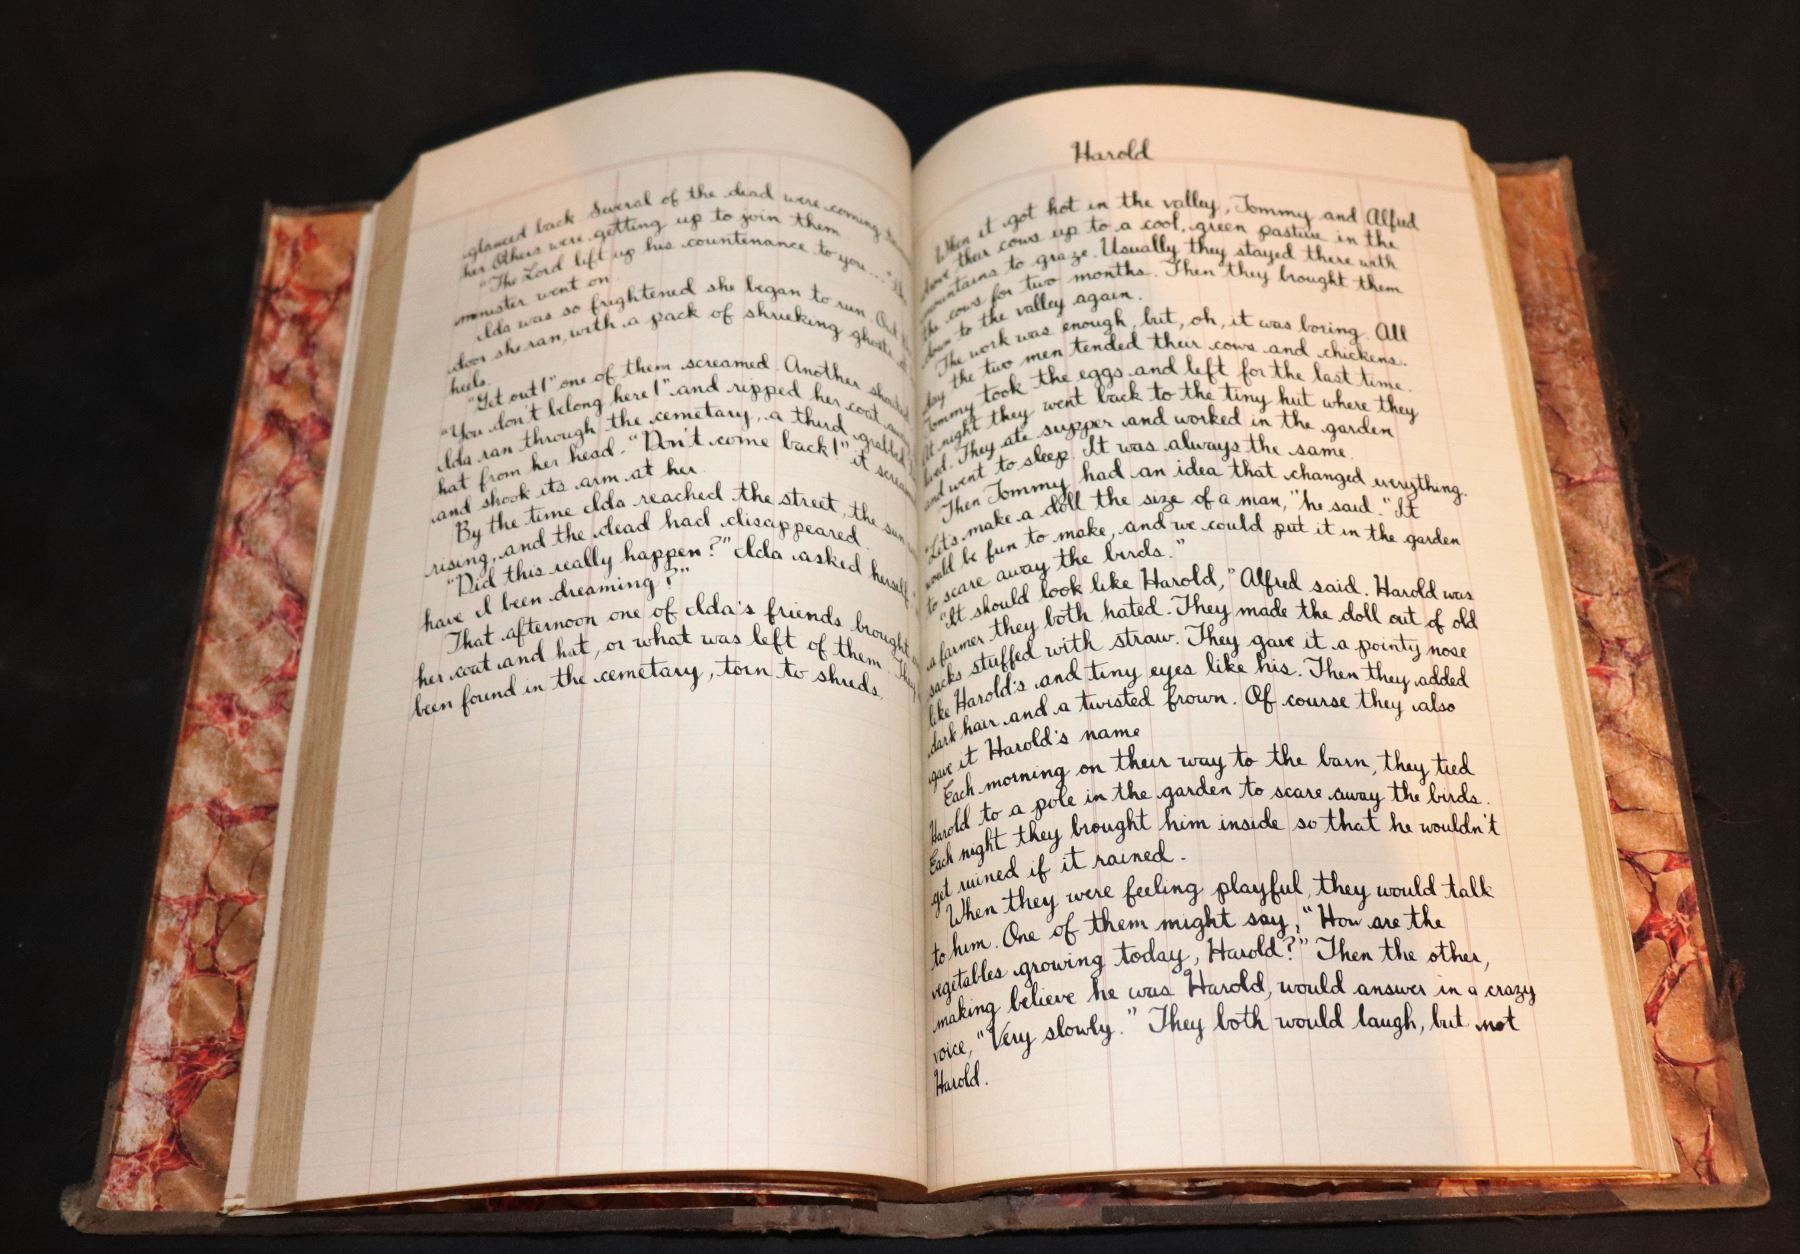 glanced back Several of the dead were coming
her Others were getting up to join them
"The Lord lift up his countenance to you..." the
minister went on
Ida was so frightened she began to run. Out the
door she ran, with a pack of shrieking ghosts at
heels.
"Get out!" one of them screamed. Another shouted
"You don't belong here!" and ripped her coat away
Ida ran through the cemetary, a third grabbed
hat from her head. "Don't come back!" it screamed
and shook its arm at her.
By the time Ida reached the street, the sun was
rising, and the dead had disappeared.
"Did this really happen?" Ida asked herself
have I been dreaming?"
That afternoon one of Ida's friends brought
her coat and hat, or what was left of them They
been found in the cemetary, torn to shreds.
Harold
When it got hot in the valley, Tommy and Alfred
drove their cows up to a cool, green pasture in the
mountains to graze. Usually they stayed there with
the cows for two months. Then they brought them
down to the valley again.
The work was enough, but, oh, it was boring. All
day the two men tended their cows and chickens.
Tommy took the eggs and left for the last time.
At night they went back to the tiny hut where they
lived. They ate supper and worked in the garden
and went to sleep. It was always the same.
Then Tommy had an idea that changed everything.
"Let's make a doll the size of a man," he said. "It
would be fun to make, and we could put it in the garden
to scare away the birds."
"It should look like Harold," Alfred said. Harold was
a farmer they both hated. They made the doll out of old
sacks stuffed with straw. They gave it a pointy nose
like Harold's and tiny eyes like his. Then they added
dark hair and a twisted frown. Of course they also
gave it Harold's name
Each morning on their way to the barn, they tied
Harold to a pole in the garden to scare away the birds.
Each night they brought him inside so that he wouldn't
get ruined if it rained.
When they were feeling playful, they would talk
to him. One of them might say, "How are the
vegetables growing today, Harold?" Then the other,
making believe he was Harold, would answer in a crazy
voice, "Very slowly." They both would laugh, but not
Harold.